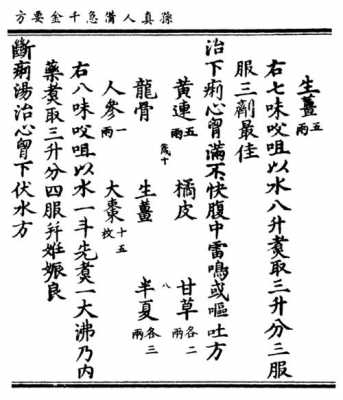 孫真人備急千金要方
生薑五兩
右七味㕮咀以水八升煑取三升分三服
服三劑最佳
治下痢心胷滿不快腹中雷鳴或嘔吐方
黃連五兩 橘皮 甘草各二兩
茂十 八
龍骨 生薑 半夏各三兩
人參一兩 大棗十五枚
右八味㕮咀以水一斗先煑一大沸乃内
藥煑取三升分四服并妊娠良
斷痢湯治心胷下伏水方